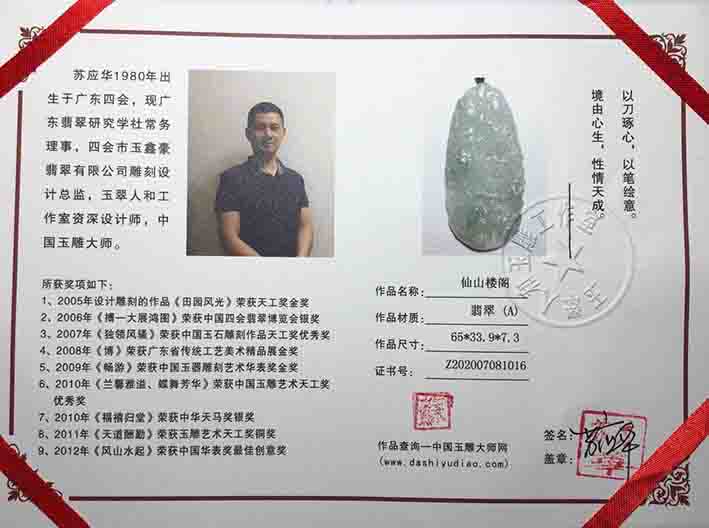 苏应华1980年出
生于广东四会，现广
东翡翠研究学社常务
理事，四会市玉鑫豪
翡翠有限公司雕刻设
计总监，玉翠人和工
作室资深设计师，中
国玉雕大师。
以刀琢心，以笔绘意。
境由心生，性情天成。
所获奖项如下：
1、2005年设计雕刻的作品《田园风光》荣获天工奖金奖
2、2006年《搏一大展鸿图》荣获中国四会翡翠博览会银奖
3、2007年《独领风骚》荣获中国玉石雕刻作品天工奖优秀奖
4、2008年《博》荣获广东省传统工艺美术精品展金奖
5、2009年《畅游》荣获中国玉器雕刻艺术华表奖金奖
6、2010年《兰馨雅溢、蝶舞芳华》荣获中国玉雕艺术天工奖
优秀奖
7、2010年《福禧归堂》荣获中华天马奖银奖
8、2011年《天道酬勤》荣获玉雕艺术天工奖铜奖
9、2012年《风山水起》荣获中国华表奖最佳创意奖
作品名称：仙山楼阁
作品材质：翡翠（A）
作品尺寸：65*33.9*7.3
证书号：Z202007081016
作品查询—中国玉雕大师网
(www.dashiyudiao.com)
签名：
盖章：